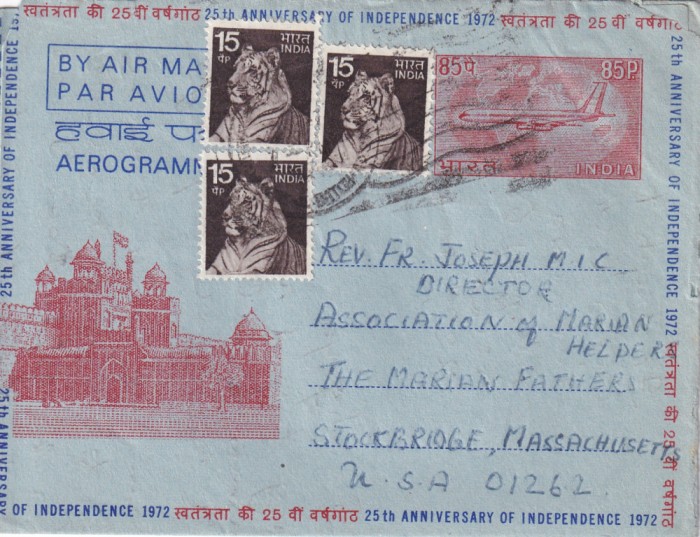 स्वतंत्रता की 25 वीं वर्षगांठ 25th ANNIVERSARY OF INDEPENDENCE 1972 स्वतंत्रता की 25 वीं वर्षगांठ
25th ANNIVERSARY OF INDEPENDENCE
25th ANNIVERSARY
BY AIR MA
PAR AVIO
हवाई
AEROGRAMM
15
पै P
भारत
INDIA
15
पै P
भारत
INDIA
15
पै P
भारत
INDIA
85 पै
85 P.
भारत
INDIA
REV. FR. JOSEPH M.I.C
DIRECTOR
ASSOCIATION of MARIAN
HELPER
THE MARIAN FATHERS
STOCKBRIDGE, MASSACHUSETTS
U.S.A 01262.
25th ANNIVERSARY OF INDEPENDENCE 1972 स्वतंत्रता की 25 वीं वर्षगांठ
OF INDEPENDENCE 1972 स्वतंत्रता की 25 वीं वर्षगांठ 25th ANNIVERSARY OF INDEPENDENCE 1972